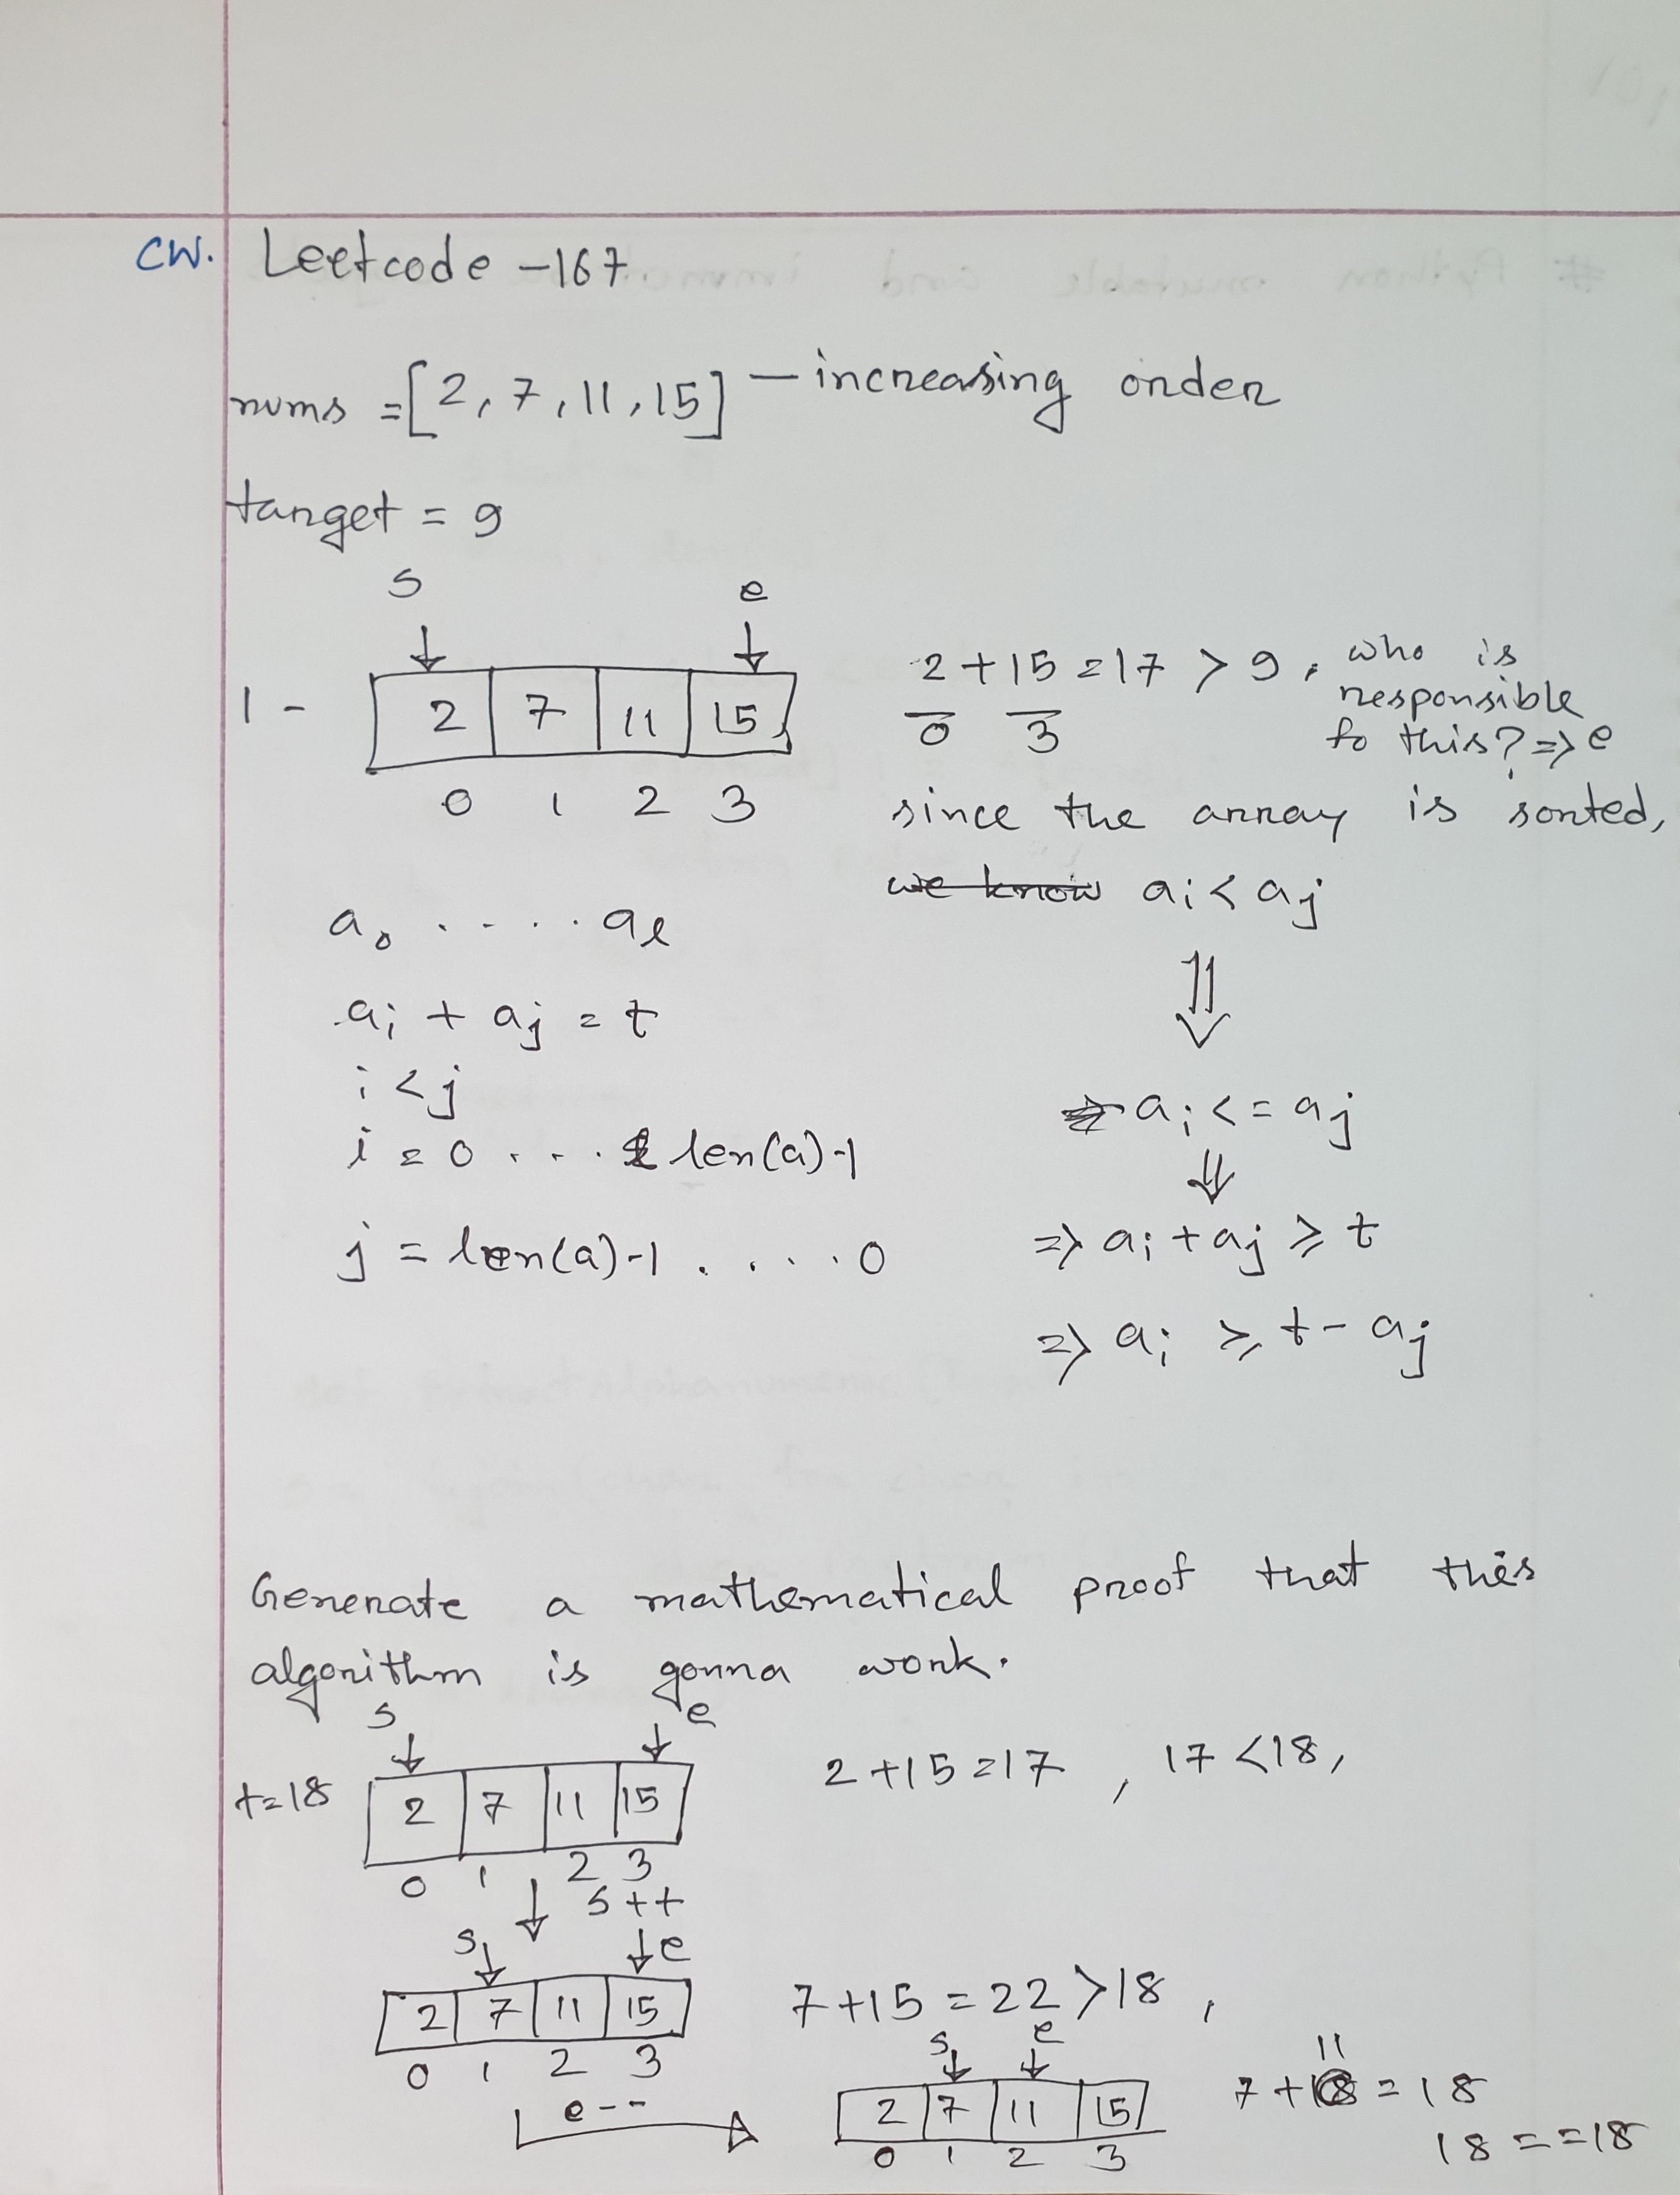 CW. Leetcode -167.
nums = [2, 7, 11, 15] — increasing order
target = 9
s e
1 - 2 7 11 15
0 1 2 3
2 + 15 = 17 > 9, who is
0 3 responsible
to this? => e
since the array is sorted,
we know ai < aj
⇓
ai <= aj
⇓
=> ai + aj ≥ t
=> ai ≥ t - aj
a0 . - . . . al
ai + aj = t
i < j
i = 0 . . . len(a)-1
j = len(a)-1 . . . . 0
Generate a mathematical proof that this
algorithm is gonna work.
s e
t=18 2 7 11 15 2 + 15 = 17 , 17 < 18,
0 1 2 3
↓ s++
s e
2 7 11 15 7 + 15 = 22 > 18 ,
0 1 2 3
e--
s e
2 7 11 15 7 + 11 = 18
0 1 2 3 18 == 18